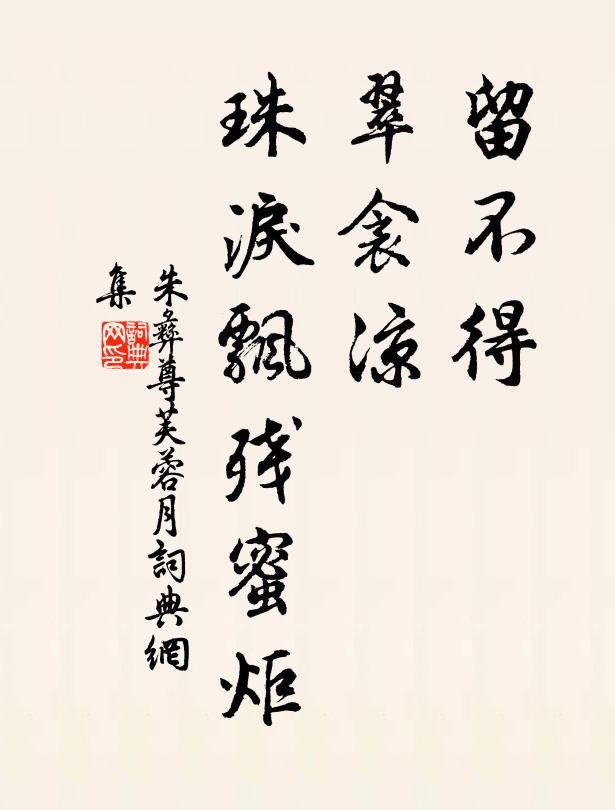 留不得
翠衾凉
珠淚飄残蜜炬
朱彝尊芙蓉月詞典網
集
詞典
网印